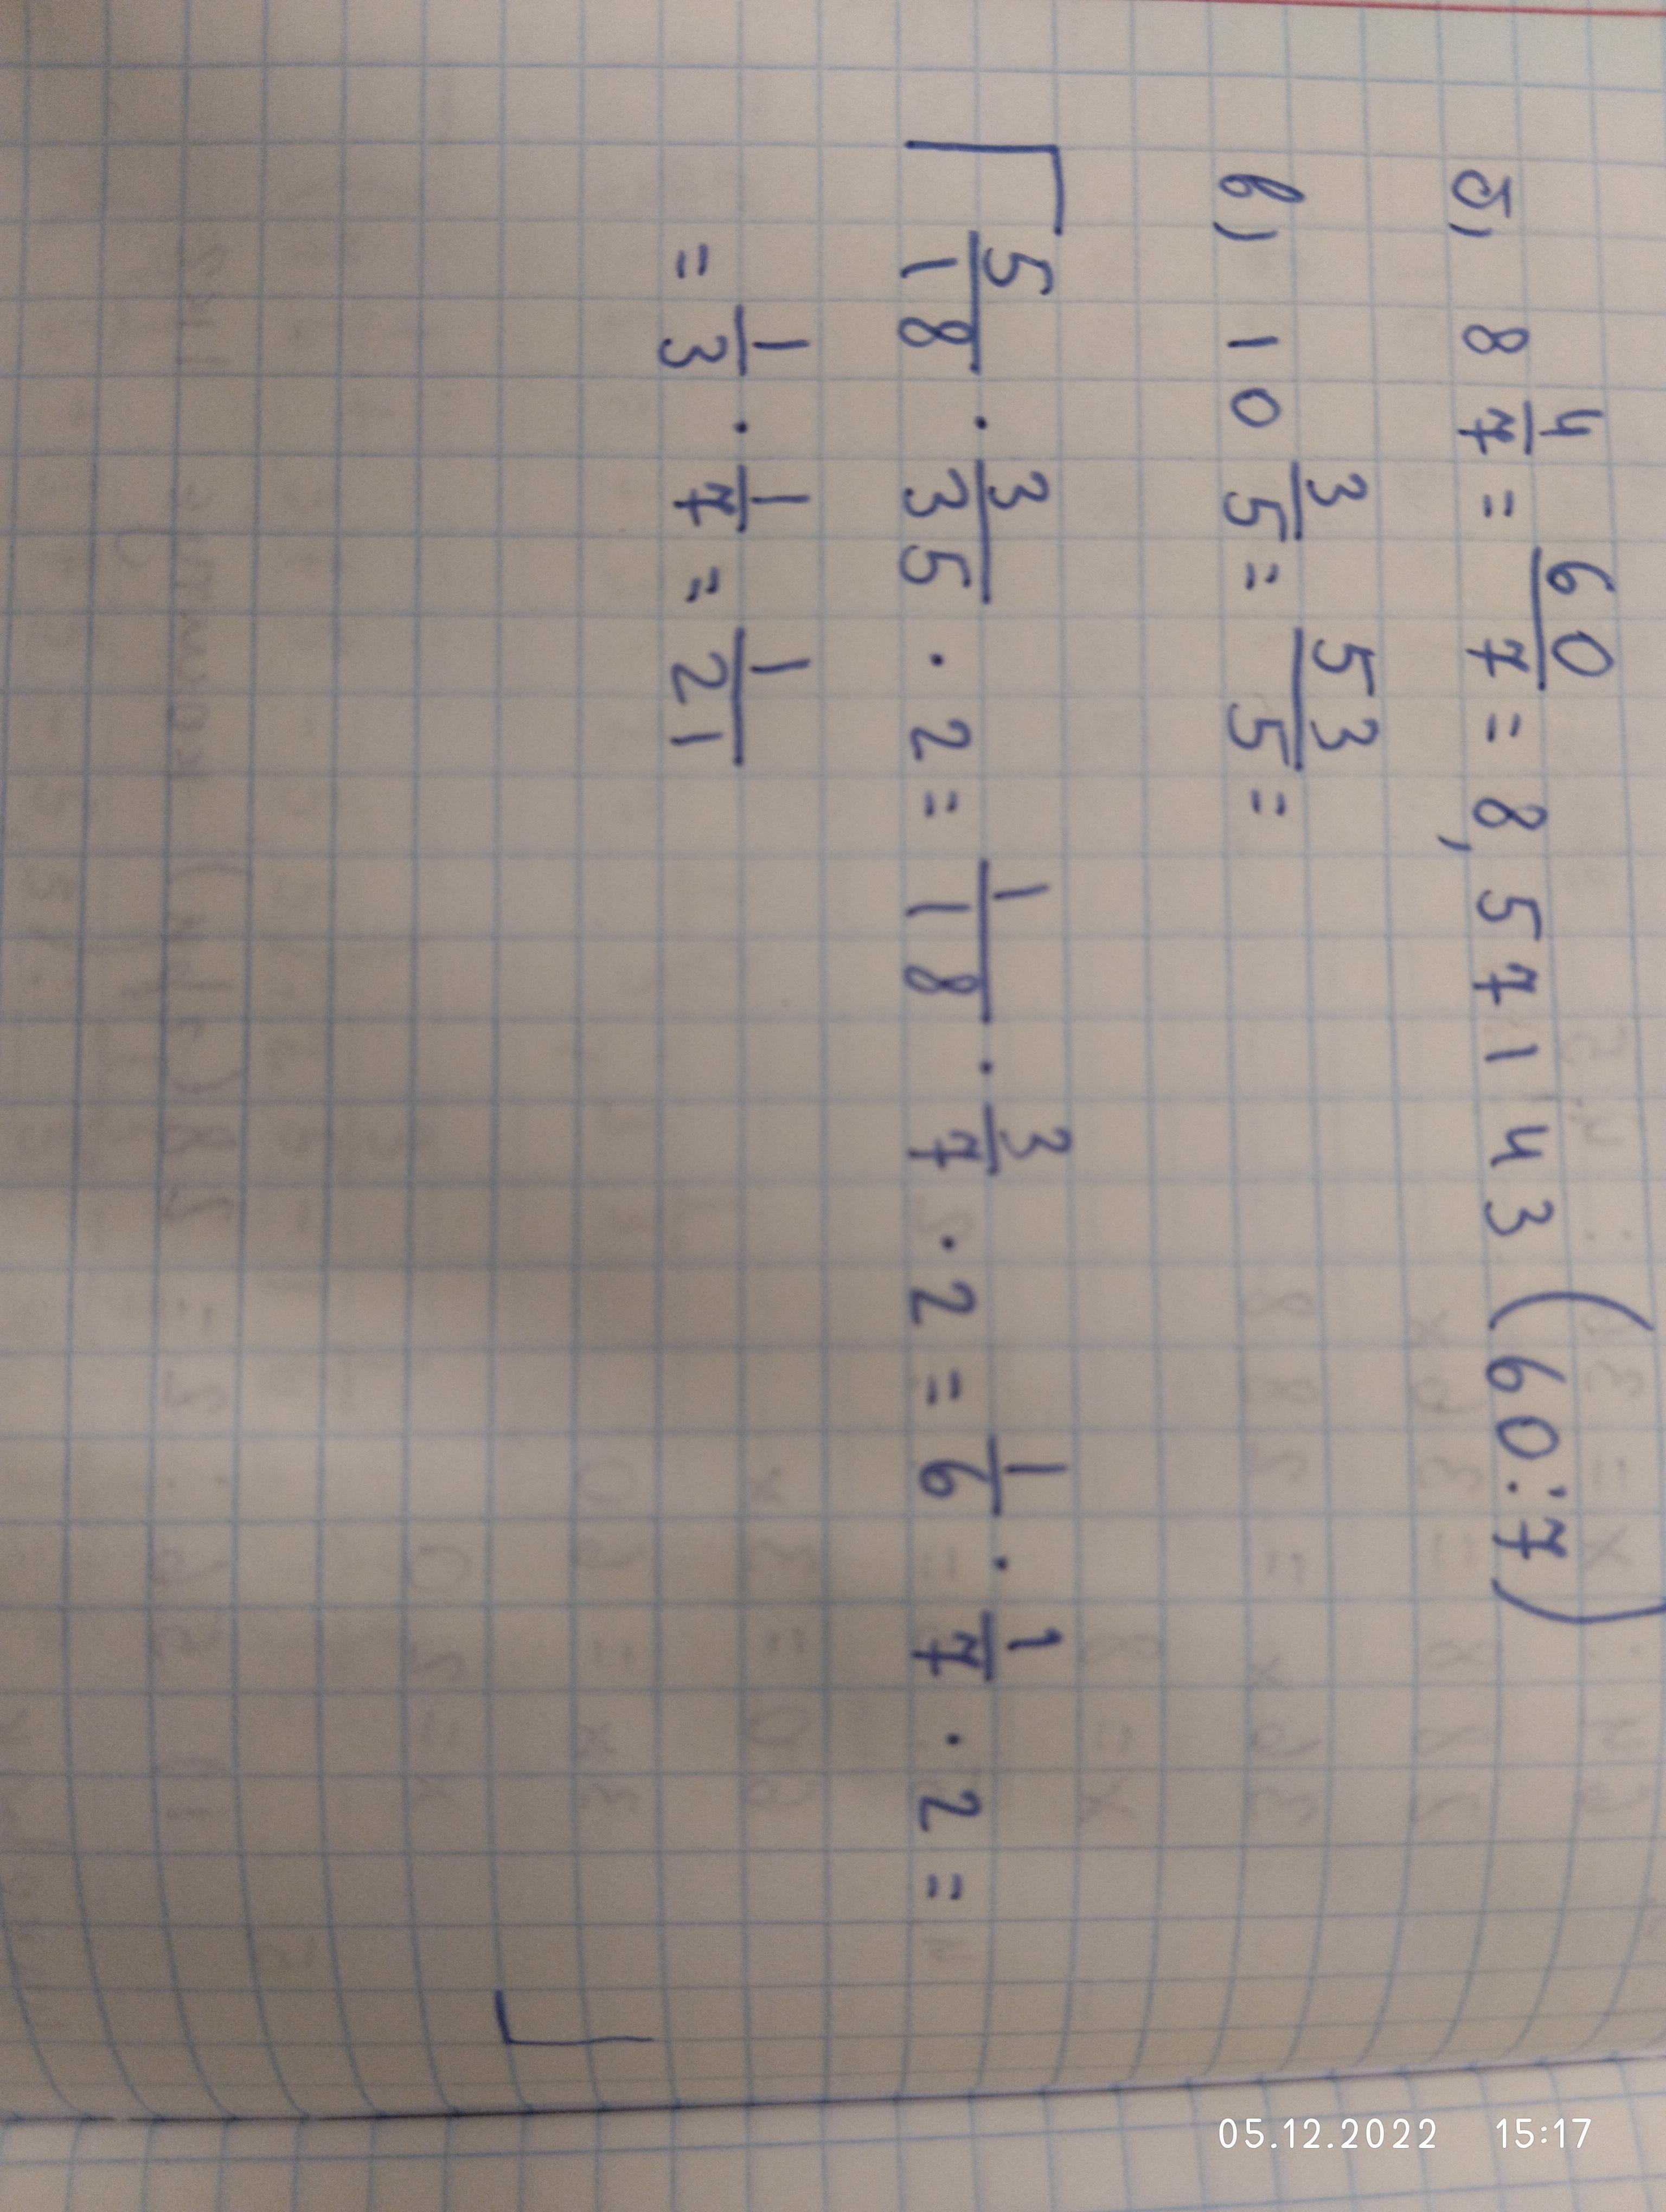 б) 8 4/7 = 60/7 = 8,57143 (60:7)
в) 10 3/5 = 53/5 =
5/18 · 3/35 · 2 = 1/18 · 3/7 · 2 = 1/6 · 1/7 · 2 =
= 1/3 · 1/7 = 1/21
05.12.2022 15:17